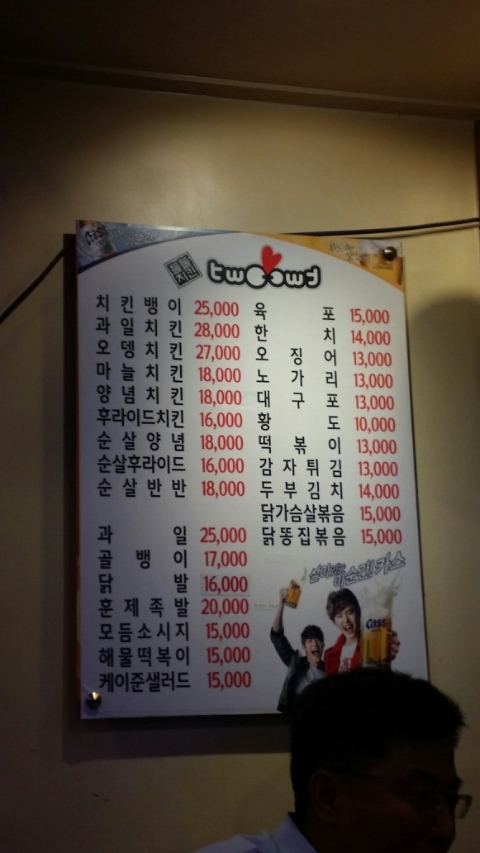 Cass
twoowd
치킨뱅이 25,000
과일치킨 28,000
오뎅치킨 27,000
마늘치킨 18,000
양념치킨 18,000
후라이드치킨 16,000
순살양념 18,000
순살후라이드 16,000
순살반반 18,000
과일 25,000
골뱅이 17,000
닭발 16,000
훈제족발 20,000
모듬소시지 15,000
해물떡볶이 15,000
케이준샐러드 15,000
육포 15,000
한치 14,000
오징어 13,000
노가리 13,000
대구포 13,000
황도 10,000
떡볶이 13,000
감자튀김 13,000
두부김치 14,000
닭가슴살볶음 15,000
닭똥집볶음 15,000
이순간! 카스
Cass